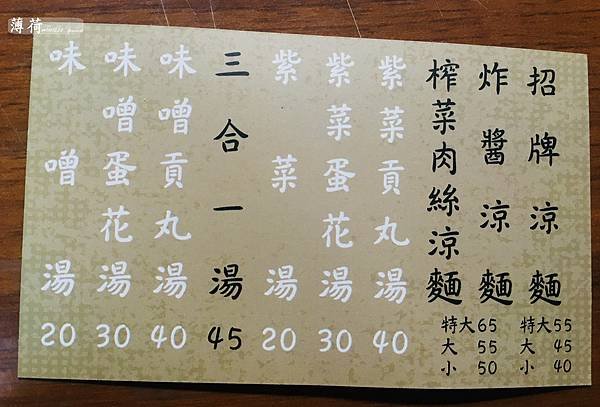 薄荷
招牌涼麵
特大55
大 45
小 40
炸醬涼麵
榨菜肉絲涼麵
特大65
大 55
小 50
紫菜貢丸湯 40
紫菜蛋花湯 30
紫菜湯 20
三合一湯 45
味噌貢丸湯 40
味噌蛋花湯 30
味噌湯 20